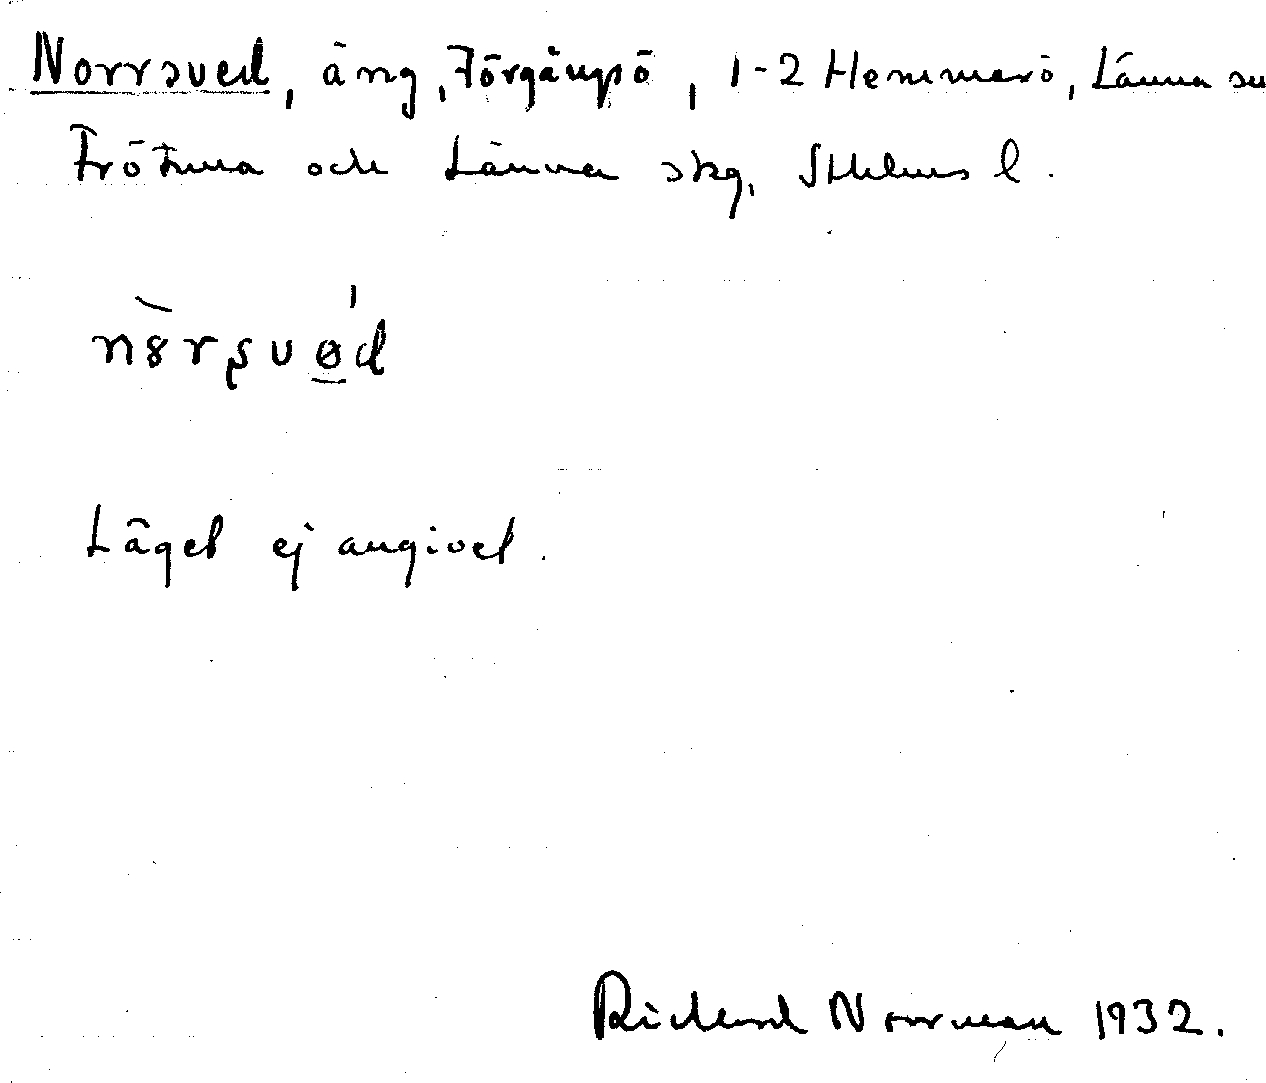 Norrsved, äng, Förgängsö, 1-2 Hemmarö, Länna sn
Frötuna och Länna skg, Sthlms l.
nȣ̀rʂvød
Läget ej angivet.
Rickard Norrman 1932.